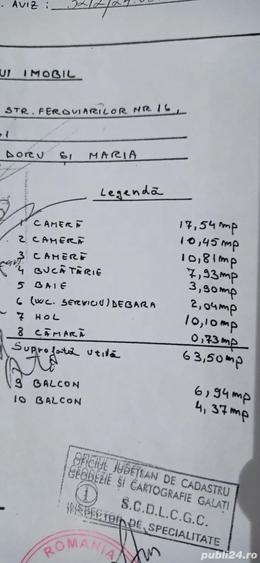 . AVIZ :
UI IMOBIL
STR. FEROVIARILOR NR 16,
DORU ȘI MARIA
Legendă
1 CAMERĂ 17,54mp
2 CAMERĂ 10,45mp
3 CAMERĂ 10,81mp
4 BUCĂTĂRIE 7,93mp
5 BAIE 3,90mp
6 (WC. SERVICIU) DEBARA 2,04mp
7 HOL 10,10mp
8 CĂMARĂ 0,73mp
Suprafață utilă 63,50mp
9 BALCON 6,94mp
10 BALCON 4,37mp
OFICIUL JUDEȚEAN DE CADASTRU
GEODEZIE ȘI CARTOGRAFIE GALAȚI
S.C.D.L.C.G.C.
INSPECTOR DE SPECIALITATE
ROMANIA
publi24.ro